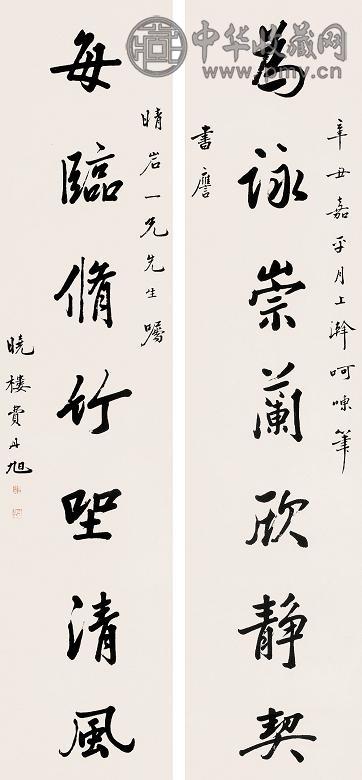 中华收藏网
辛丑嘉平月上澣呵凍筆
為詠崇蘭欣靜契
書應
晴岩一兄先生囑
每臨脩竹坐清風
曉樓費丹旭